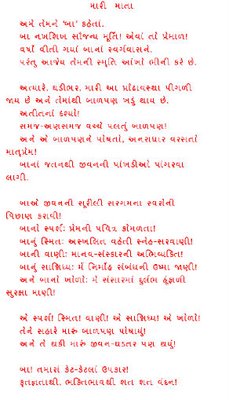 મારી માતા
અમે તેમને 'બા' કહેતાં.
બા નખશિખ સૌજન્ય મૂર્તિ! એવાં તો પ્રેમાળ!
વર્ષો વીતી ગયાં બાનાં સ્વર્ગવાસને.
પરંતુ આજેય તેમની સ્મૃતિ આંખો ભીની કરે છે.
અત્યારે, ઘડીભર, મારી આ પ્રૌઢાવસ્થા પીગળી
જાય છે અને તેમાંથી બાળપણ ખડું થાય છે.
અતીતનાં દશ્યો!
સમજ-અણસમજ વચ્ચે પલતું બાળપણ!
અને એ બાળપણને પોષતાં, અનરાધાર વરસતાં
માતૃપ્રેમ!
બાનાં જતનથી જીવનની પાંખડીઓ પાંગરવા
લાગી.
બાએ જીવનની સૂરીલી સરગમના સ્વરોની
પિછાણ કરાવી!
બાનો સ્પર્શ: પ્રેમની પવિત્ર કોમળતા!
બાનું સ્મિત: અસ્ખલિત વહેતી સ્નેહ-સરવાણી!
બાની વાણી: માનવ-સંસ્કારની અભિવ્યક્તિ!
બાનું સાન્નિધ્ય: મેં નિર્મોહ સંબંધની ઉષ્મા જાણી!
અને બાનો ખોળો: મેં સંસારમાં દુર્લભ હૂંફાળી
સુરક્ષા માણી!
એ સ્પર્શ! સ્મિત! વાણી! એ સાન્નિધ્ય! એ ખોળો!
તેને સહારે મારું બાળપણ પોષાયું!
અને તે થકી મારું જીવન-ઘડતર પણ થયું!
બા! તમારાં કેટ-કેટલાં ઉપકાર!
કૃતજ્ઞતાથી, ભક્તિભાવથી શત શત વંદન!